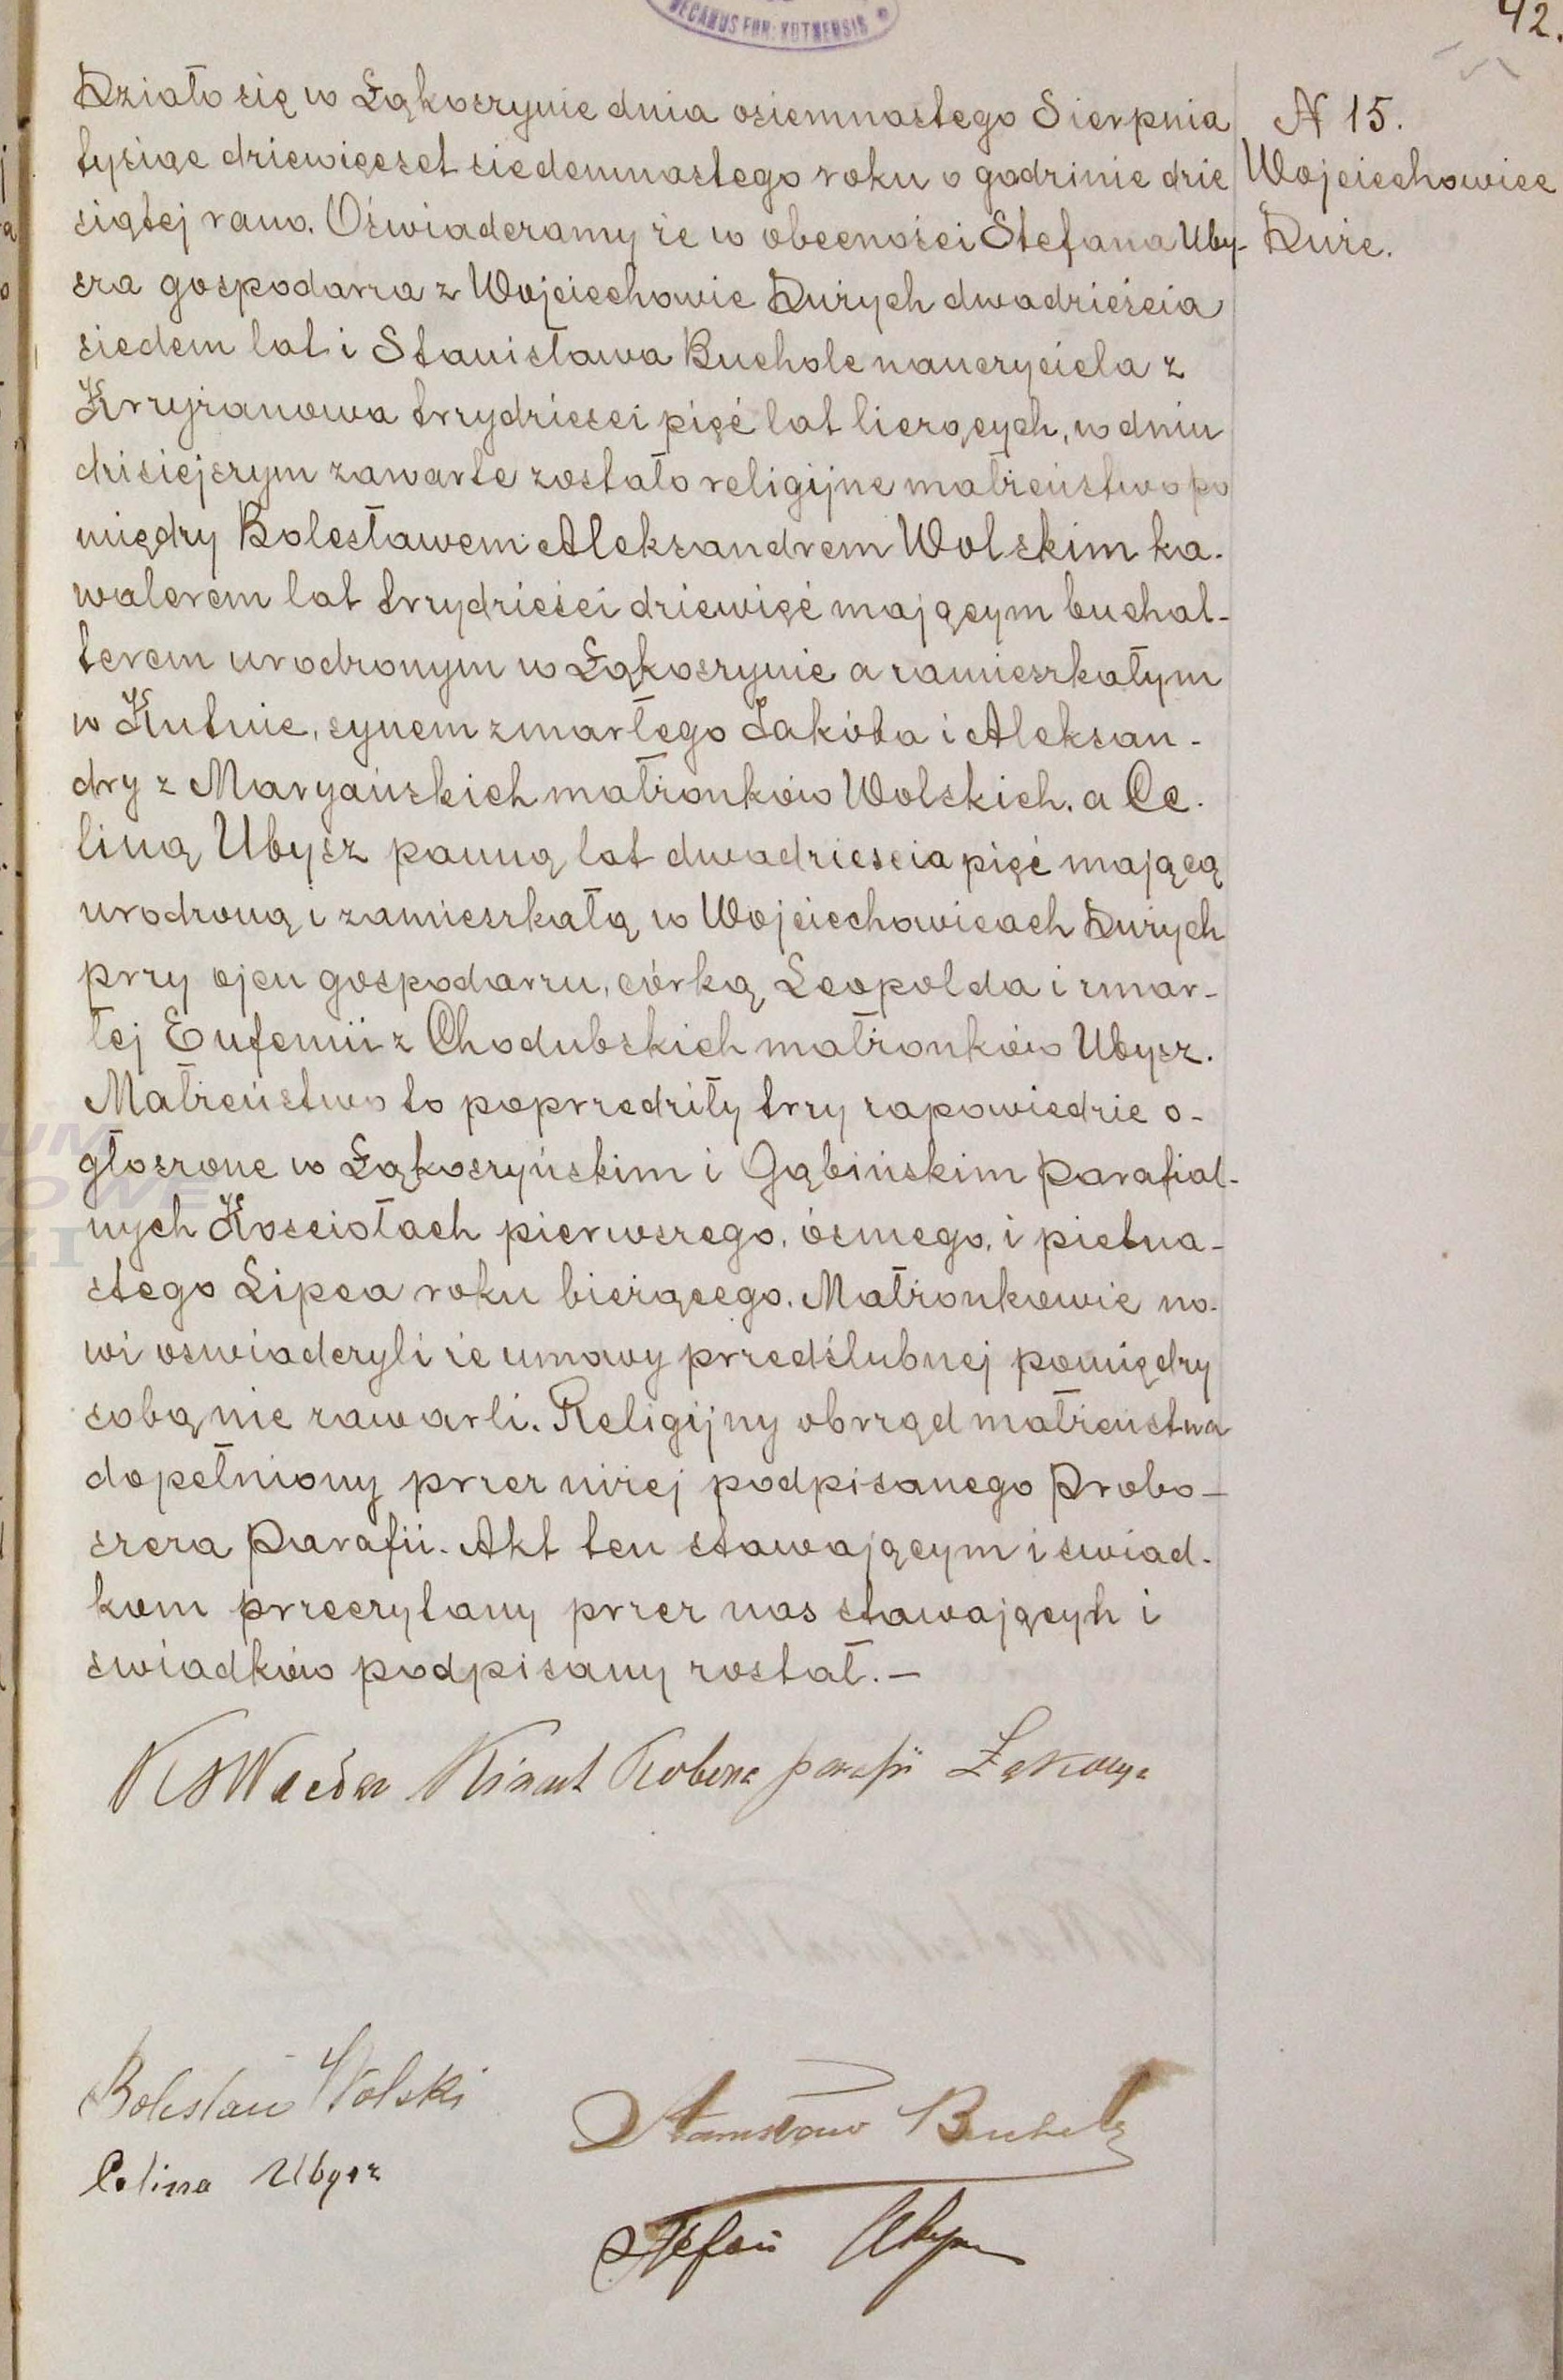 DECANUS FOR: KUTNENSIS
42.
N 15.
Wojciechowice
Duże.
Działo się w Łąkoszynie dnia osiemnastego Sierpnia
tysiąc dziewięcset siedemnastego roku o godzinie dzie
siątej rano. Oświadczamy że w obecności Stefana Uby-
sza gospodarza z Wojciechowic Dużych dwadzieścia
siedem lat i Stanisława Bucholc nauczyciela z
Krzyżanowa trzydziesci pięć lat liczących, w dniu
dzisiejszym zawarte zostało religijne małżeństwo po
między Bolesławem Aleksandrem Wolskim ka-
walerem lat trzydzieści dziewięć mającym buchal-
terem urodzonym w Łąkoszynie a zamieszkałym
w Kutnie, synem zmarłego Jakóba i Aleksan-
dry z Maryańskich małżonków Wolskich, a Ce-
liną Ubysz panną lat dwadziescia pięć mającą
urodzoną i zamieszkałą w Wojciechowicach Dużych
przy ojcu gospodarzu, córką Leopolda i zmar-
łej Eufemii z Chodubskich małżonków Ubysz.
Małżeństwo to poprzedziły trzy zapowiedzie o-
głoszone w Łąkoszyńskim i Gąbińskim parafial-
nych Kosciołach pierwszego, ósmego, i pietna-
stego Lipca roku bieżącego. Małżonkowie no-
wi oswiadczyli że umowy przedślubnej pomiędzy
sobą nie zawarli. Religijny obrzęd małżeństwa
dopełniony przez niżej podpisanego Probo-
szcza Parafii. Akt ten stawającym i swiad-
kom przeczytany przez nas stawających i
swiadków podpisany został.-
parafii
Bolesław Wolski
Celina Ubysz
Stanisław Bucholc
Stefan Ubysz